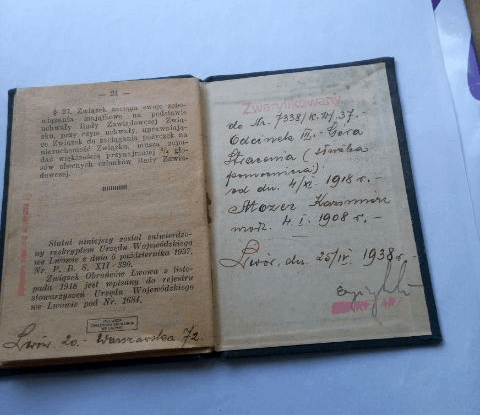 — 21 —
§ 27. Związek zaciąga swoje zobo-
wiązania majątkowe na podstawie
uchwały Rady Zawiadowczej Zwią-
zku, przy czym uchwały, uprawniają-
ce Związek do zaciągania pożyczek na
nieruchomość Związku, muszą zapa-
dać większością przynajmniej ¾ gło-
sów obecnych członków Rady Zawia-
dowczej.
Statut niniejszy został zatwierdzo-
ny reskryptem Urzędu Wojewódzkiego
we Lwowie z dnia 5 października 1937,
Nr. P. B. S. XII-230.
Związek Obrońców Lwowa z listo-
pada 1918 jest wpisany do rejestru
stowarzyszeń Urzędu Wojewódzkiego
we Lwowie pod Nr. 1684.
Lwów 20.- Warszawska 72.
Zweryfikowany
do Nr. 7338/
37.-
Odcinek III.- Góra
Stracenia (służba
pomocnicza)
od dn. 4/XI. 1918 r.-
Mozer Kazimierz
4. I. 1908 r.-
Lwów, dn. 25/IV 1938 r.-